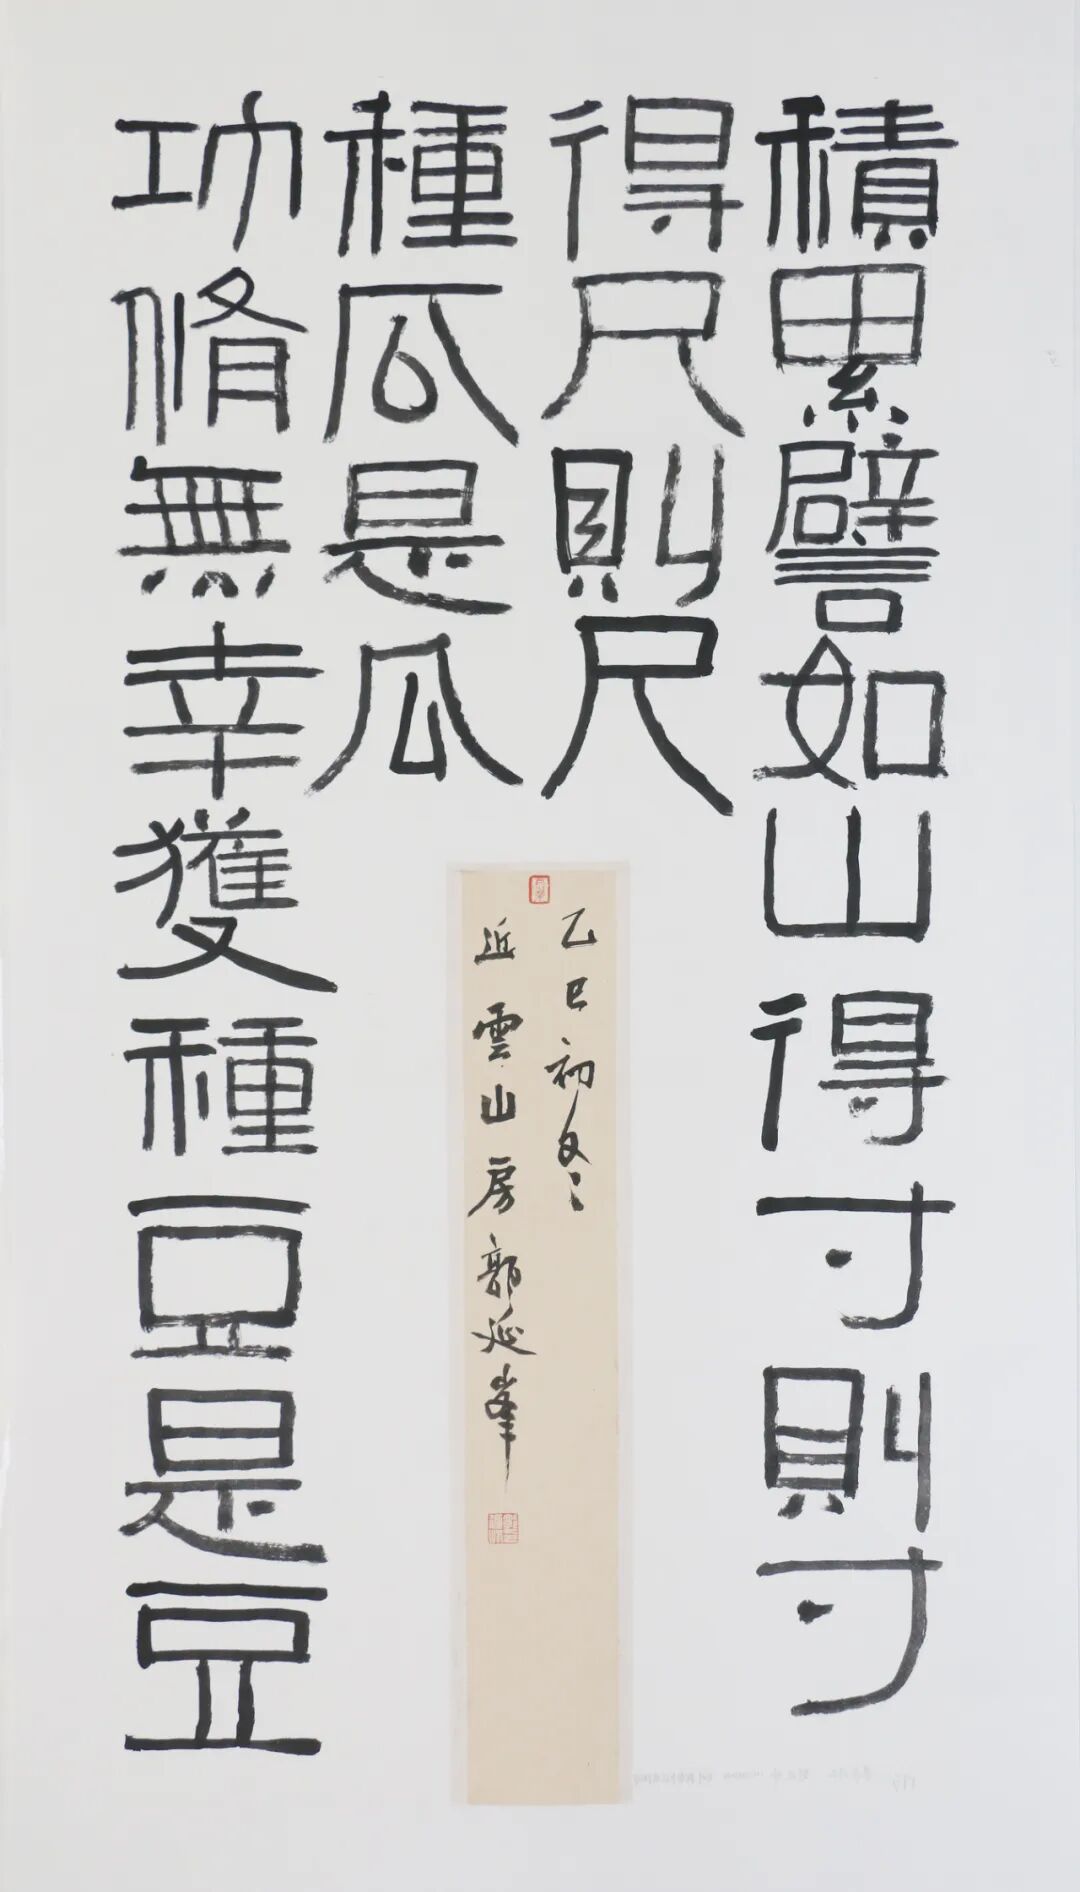 積累譬如山得寸則寸
得尺則尺
功脩無幸獲種豆是豆
種瓜是瓜
乙巳初冬
近雲山房郭延峯